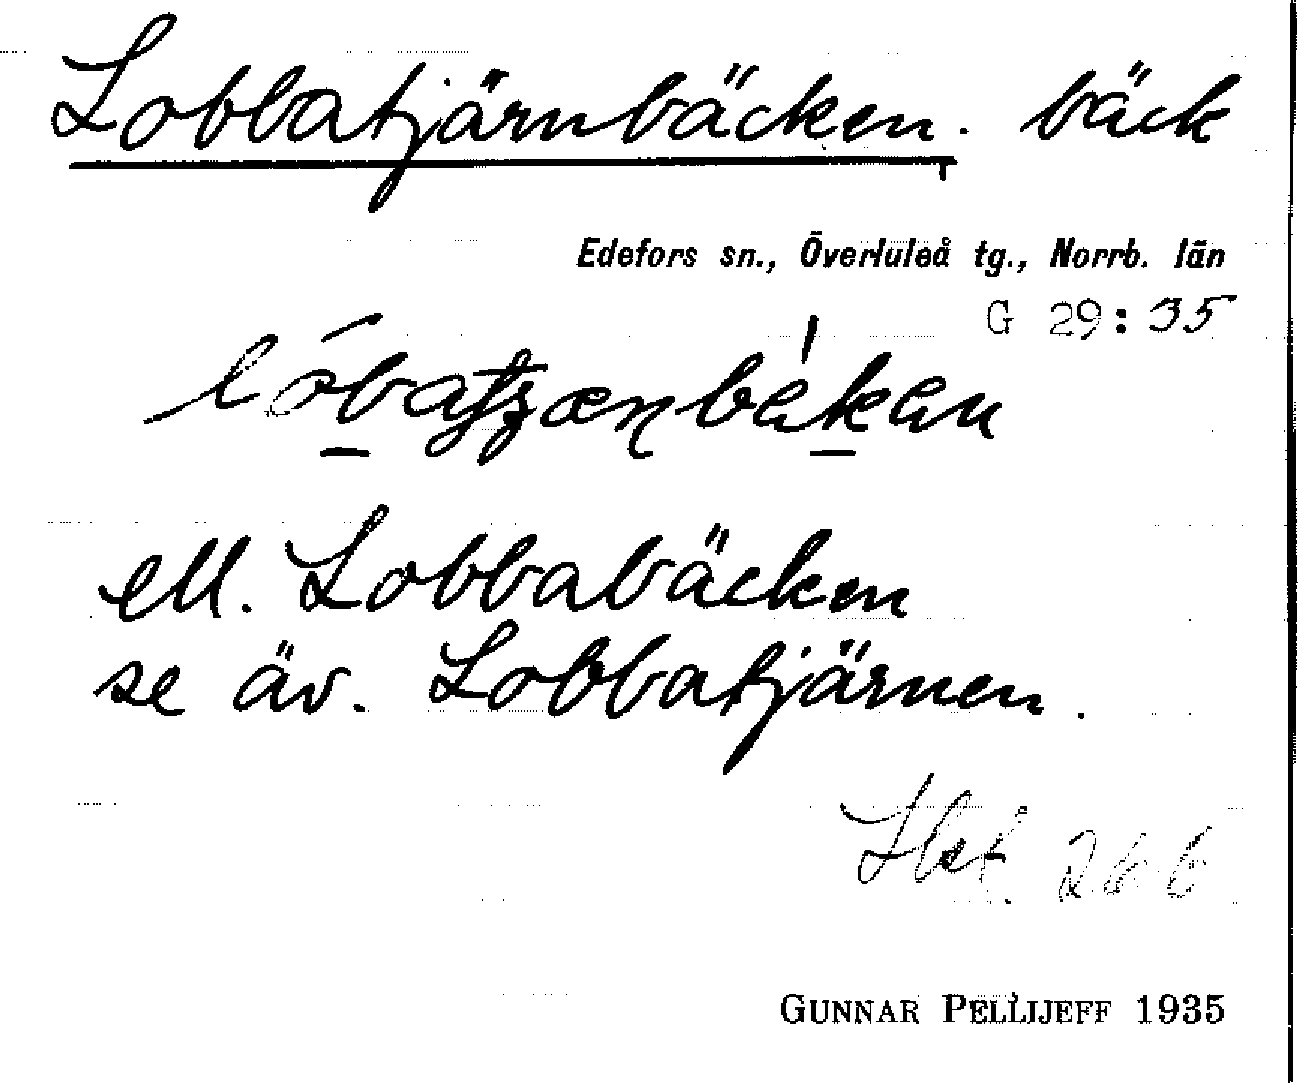 Lobbatjärnbäcken. bäck
Edefors sn., Överluleå tg., Norrb. län
G 29: 35
ell. Lobbabäcken
se äv. Lobbatjärnen.
GUNNAR PELLIJEFF 1935